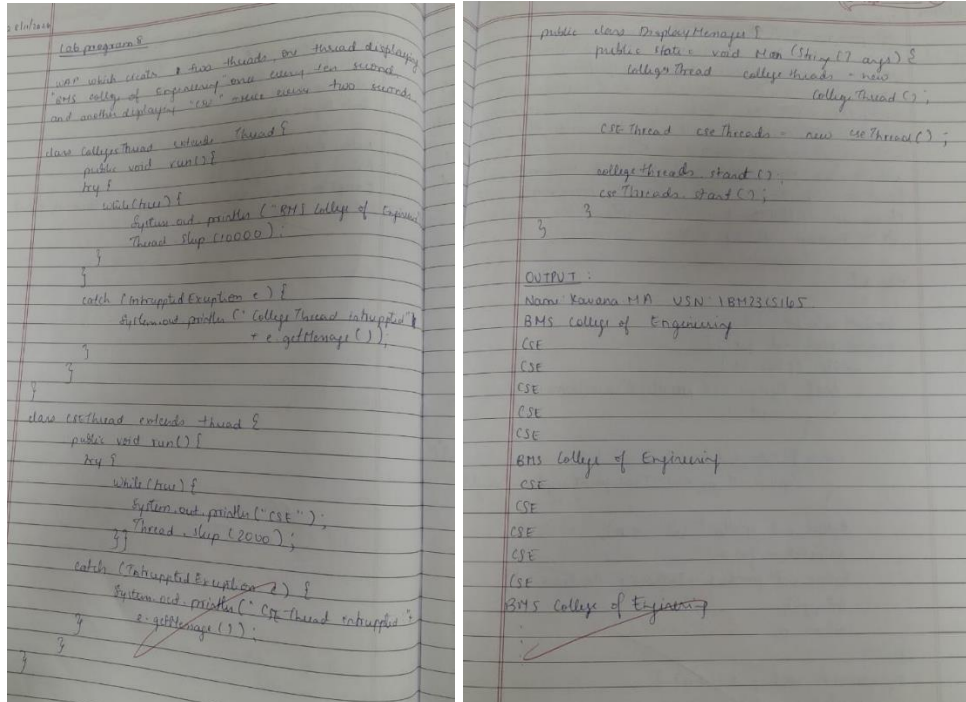 Lab program 8
WAP which creats two threads, one thread displaying
"BMS college of Engineering" once every ten second,
and another displaying "CSE" once every two seconds.
class CollegeThread extends Thread {
public void run() {
try {
while(true) {
System.out.println ("BMS College of
Thread.sleep (10000);
}
}
catch (IntruptedException e) {
System.out.println ("College Thread intrupted"
+ e.getMessage());
}
}
}
class CSEThread extends thread {
public void run() {
try {
while(true) {
System.out.println ("CSE");
Thread.sleep (2000);
}}
catch (IntruptedException e) {
System.out.println (" CSE-thread intrupted :
e.getMessage ());
}
}
}
public class DisplayMessages {
public static void Man (String [] args) {
CollegeThread collegethreads = new
CollegeThread ();
CSEThread cseThreads = new cseThread() ;
collegethreads.start ();
cseThreads.start ();
}
}
OUTPUT :
Name: Kavana MA USN: 1BM23CS165
BMS College of Engineering
CSE
CSE
CSE
CSE
CSE
BMS College of Engineering
CSE
CSE
CSE
CSE
CSE
BMS College of Engineering